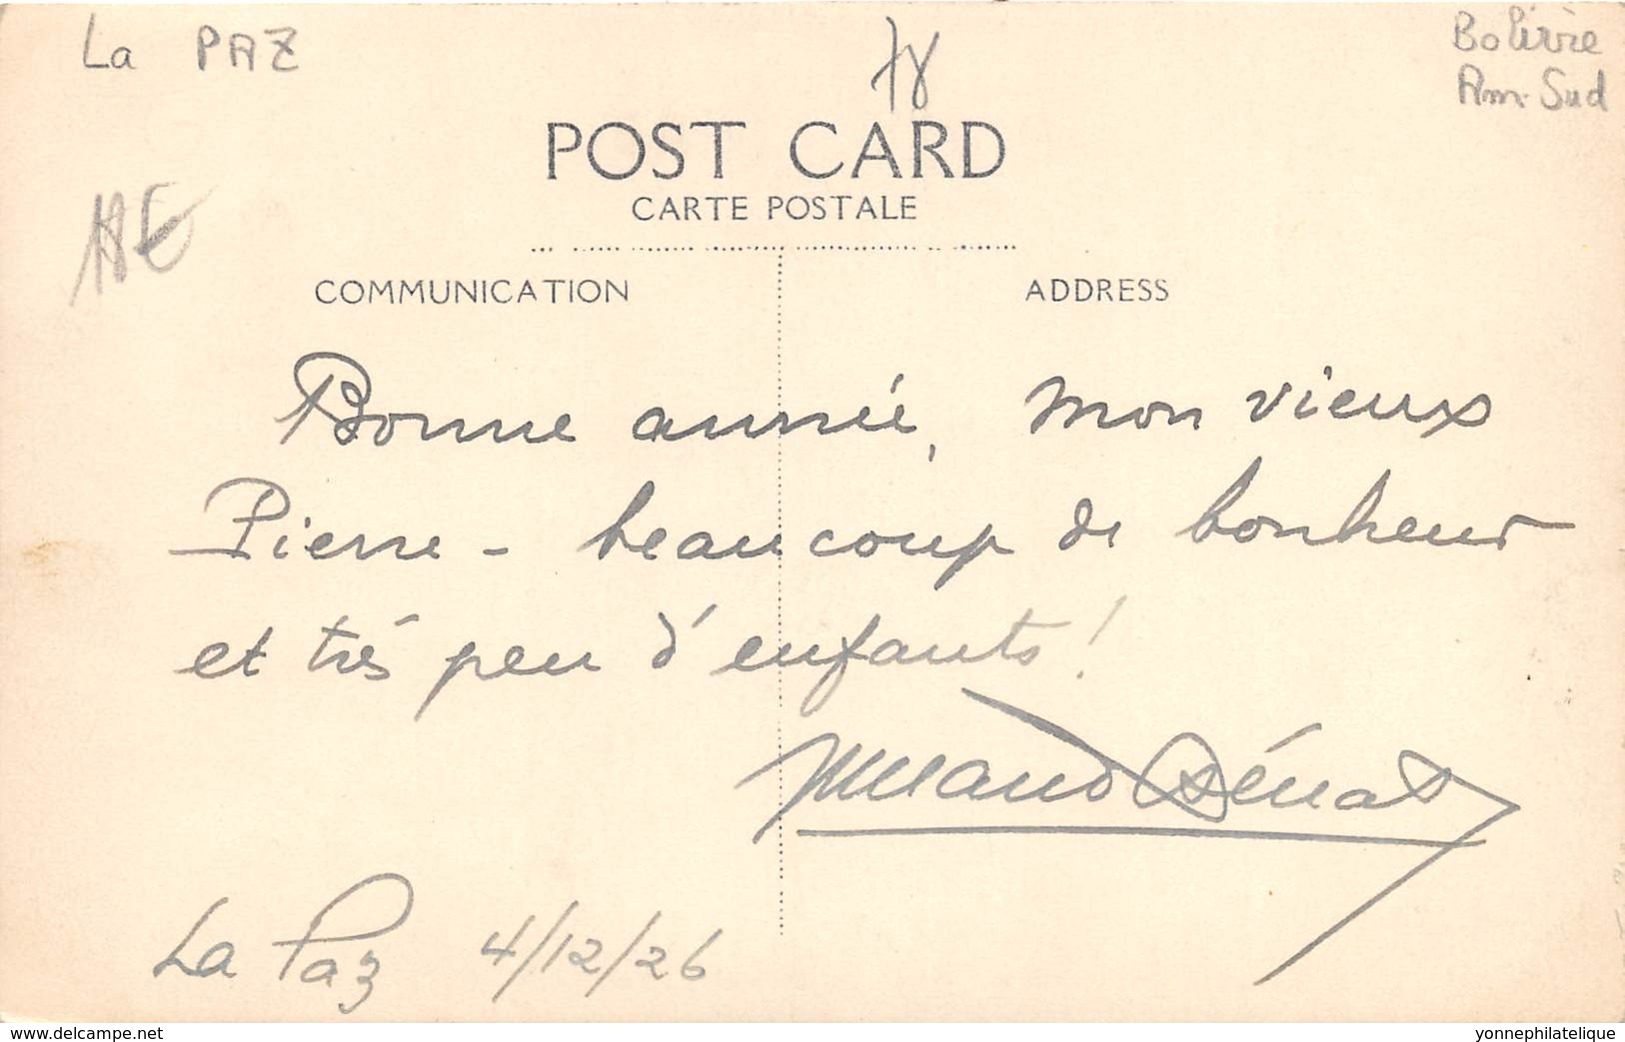 La PAZ
78
Bolivie
Am. Sud
POST CARD
CARTE POSTALE
AE
COMMUNICATION
ADDRESS
Bonne année, mon vieux
Pierre - beaucoup de bonheur
et très peu d'enfants!
La Paz 4/12/26
www.delcampe.net
yonnephilatelique